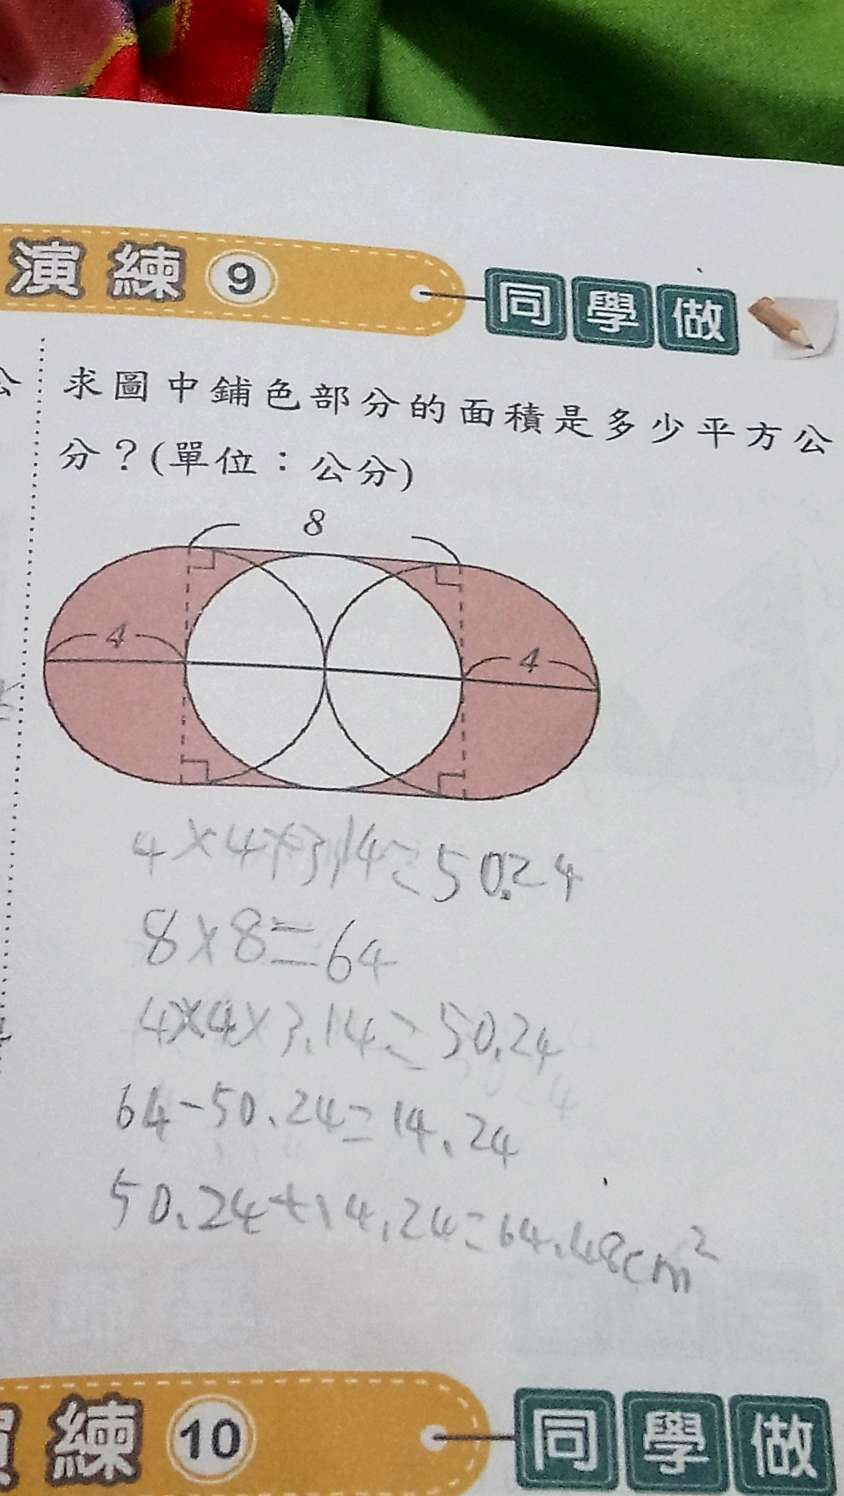 演練 9 同學做
公
求圖中鋪色部分的面積是多少平方公
分？(單位：公分)
8
4
4
4×4×3.14=50.24
8×8=64
4×4×3.14=50.24
64-50.24=14.24
50.24+14.24=64.48cm²
演練 10 同學做